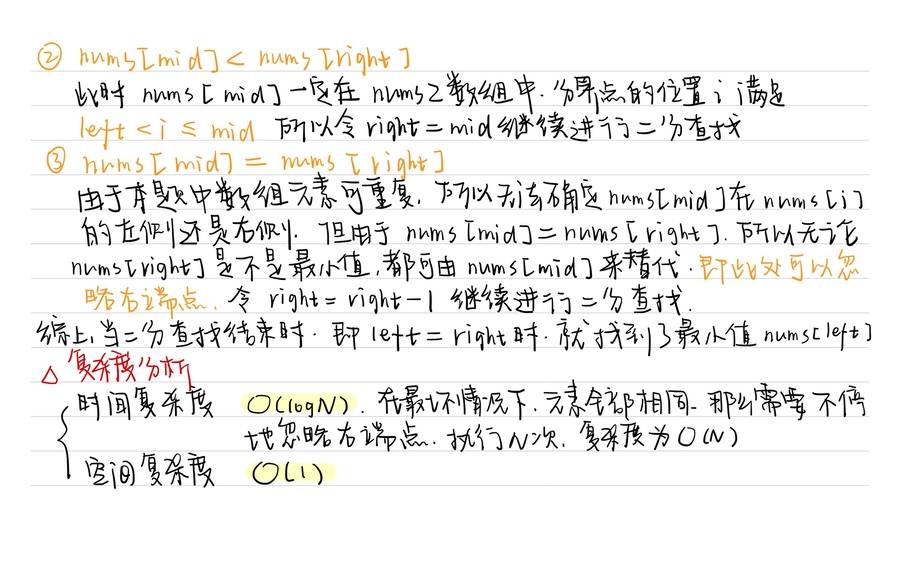 ② nums[mid] < nums[right]
此时 nums[mid]一定在 nums2数组中.分界点的位置 i 满足
left < i ≤ mid 所以令 right = mid 继续进行二分查找
③ nums[mid] = nums[right]
由于本题中数组元素可重复,所以无法确定nums[mid]在nums[i]
的左侧还是右侧.但由于 nums[mid]=nums[right].所以无论
nums[right]是不是最小值,都可由 nums[mid]来替代.即此处可以忽
略右端点.令 right = right-1 继续进行二分查找.
综上,当二分查找结束时.即 left = right时.就找到了最小值 nums[left]
△ 复杂度分析
时间复杂度 O(logN).在最坏情况下.元素全部相同.那么需要不停
地忽略右端点.执行N次.复杂度为O(N)
空间复杂度 O(1)